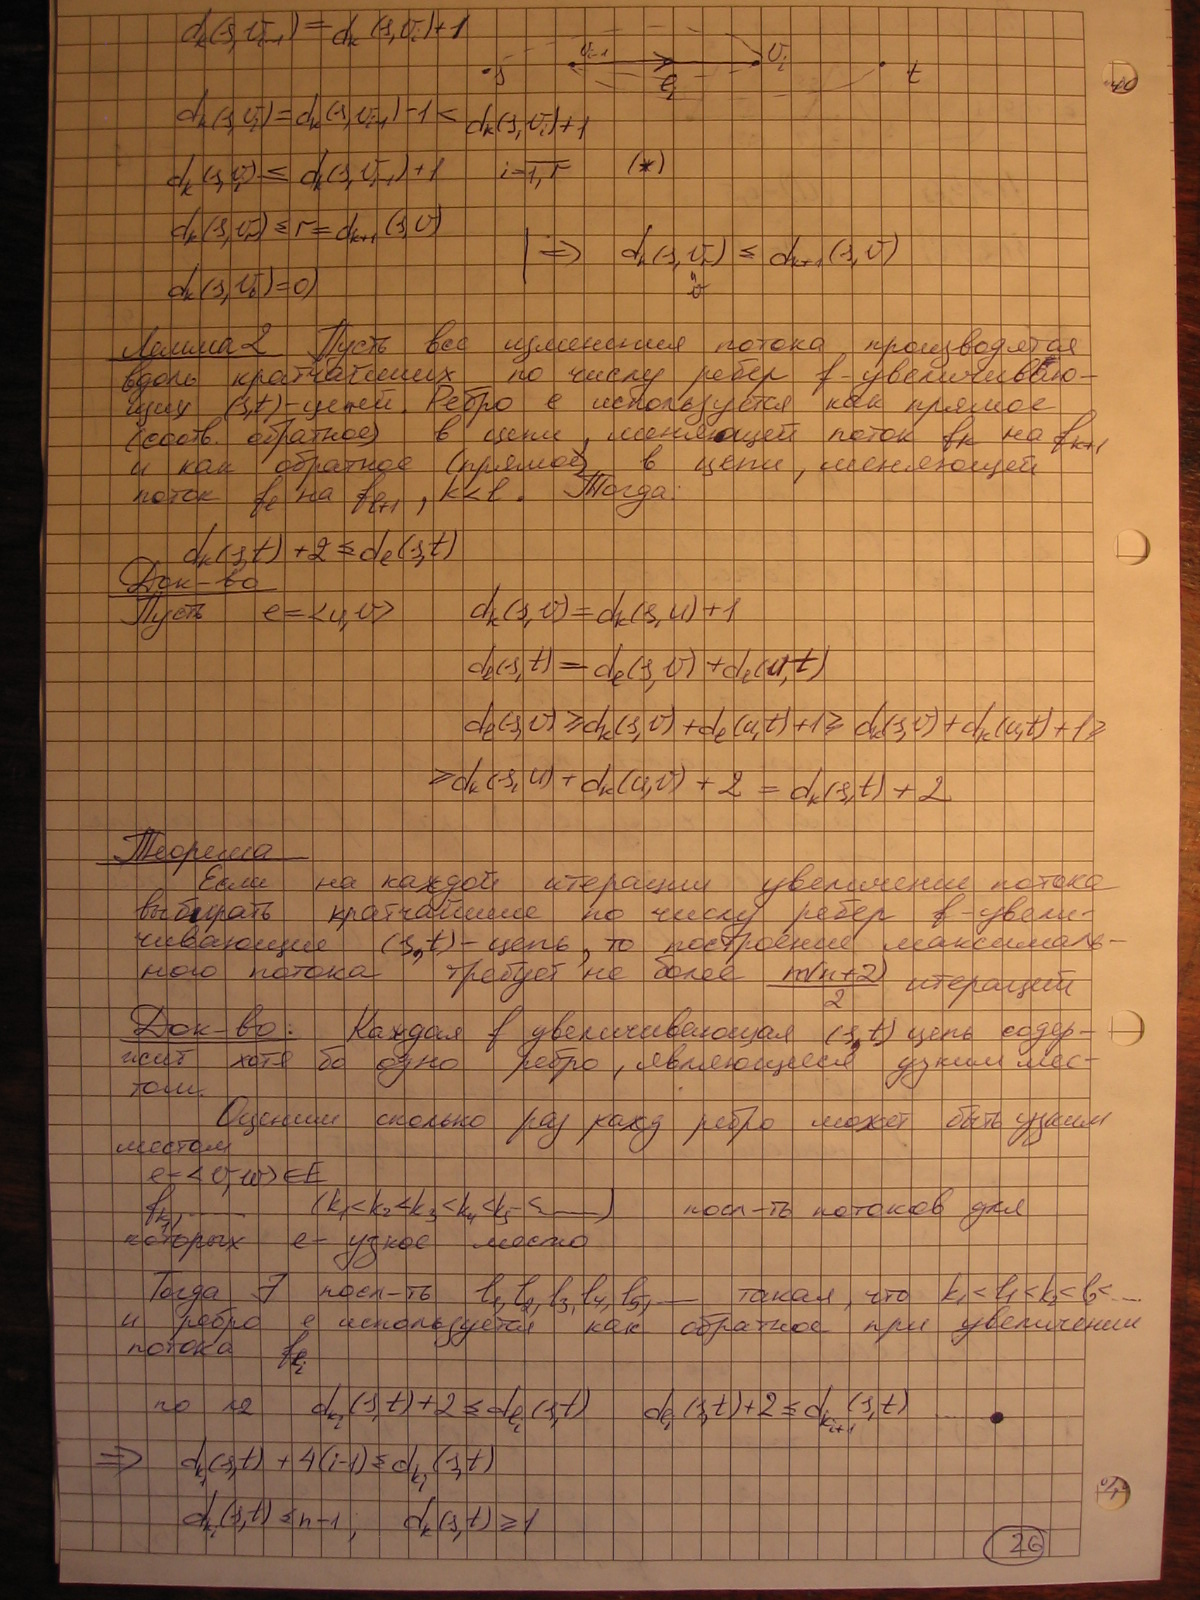 d_k(s,v_{i-1}) = d_k(s,v_i)+1
s v_{i-1} e_i v_i t
d_k(s,v_i) = d_k(s,v_{i-1})-1 < d_k(s,v_i)+1
d_k(s,v_i) ≤ d_k(s,v_{i-1})+1 i=1,r (*)
d_k(s,v_r) ≤ r = d_{k+1}(s,v)
|⇒ d_k(s,v_r) ≤ d_{k+1}(s,v)
v
d_k(s,v_0)=0)
Лемма 2 Пусть все изменения потока производятся
вдоль кратчайших по числу ребер f-увеличиваю-
щих (s,t)-цепей. Ребро e используется как прямое
(соотв. обратное) в цепи, меняющей поток f_k на f_{k+1}
и как обратное (прямое) в цепи, меняющей
поток f_l на f_{l+1}, k<l. Тогда:
d_k(s,t)+2 ≤ d_l(s,t)
Док-во
Пусть e=<u,v> d_k(s,v) = d_k(s,u)+1
d_l(s,t) = d_l(s,v)+d_l(u,t)
d_l(s,v) ≥ d_k(s,v)+d_l(u,t)+1 ≥ d_k(s,v)+d_k(u,t)+1 ≥
≥ d_k(s,u)+d_k(u,v)+2 = d_k(s,t)+2
Теорема
Если на каждой итерации увеличение потока
выбирать кратчайшие по числу ребер f-увели-
чивающие (s,t)-цепь, то построение максималь-
ного потока требует не более m(n+2)/2 итераций
Док-во: Каждая f увеличивающая (s,t) цепь содер-
жит хотя бо одно ребро, являющееся узким мес-
том.
Оценим сколько раз кажд ребро может быть узким
местом
e=<v,w>∈E
f_{k_1}, ... (k_1<k_2<k_3<k_4<k_5<...) посл-ть потоков для
которых e- узкое место
Тогда ∃ посл-ть l_1, l_2, l_3, l_4, l_5, ... такая, что k_1<l_1<k_2<l_2<...
и ребро e используется как обратное при увеличении
потока f_{l_i}
по л2 d_{k_i}(s,t)+2 ≤ d_{l_i}(s,t) d_{l_i}(s,t)+2 ≤ d_{k_{i+1}}(s,t) ....
⇒ d_{k_1}(s,t)+4(i-1) ≤ d_{k_i}(s,t)
d_{k_i}(s,t) ≤ n-1; d_k(s,t) ≥ 1
26